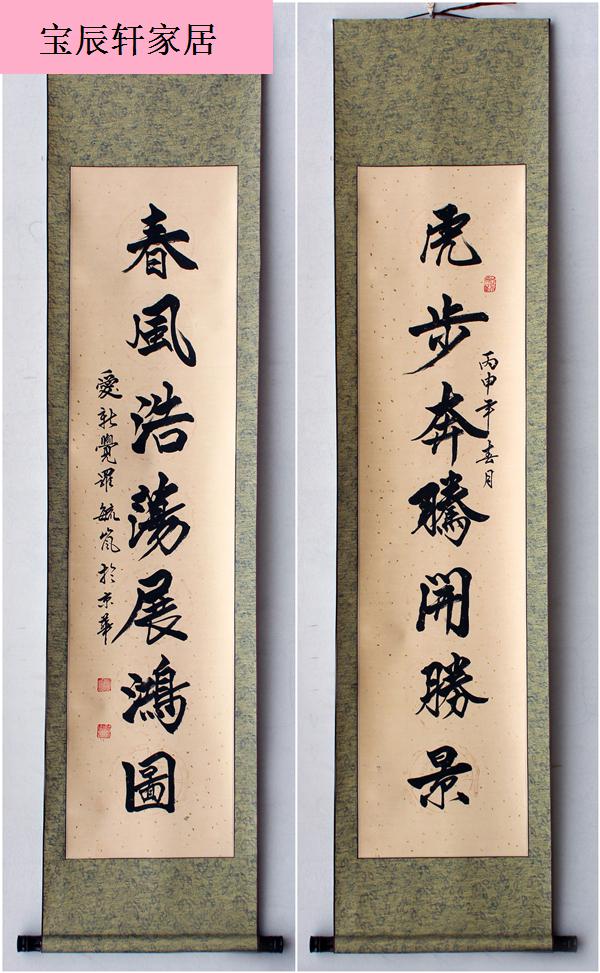 宝辰轩家居
虎步奔騰開勝景
丙申年春月
春風浩蕩展鴻圖
愛新覺羅毓嵐於京華